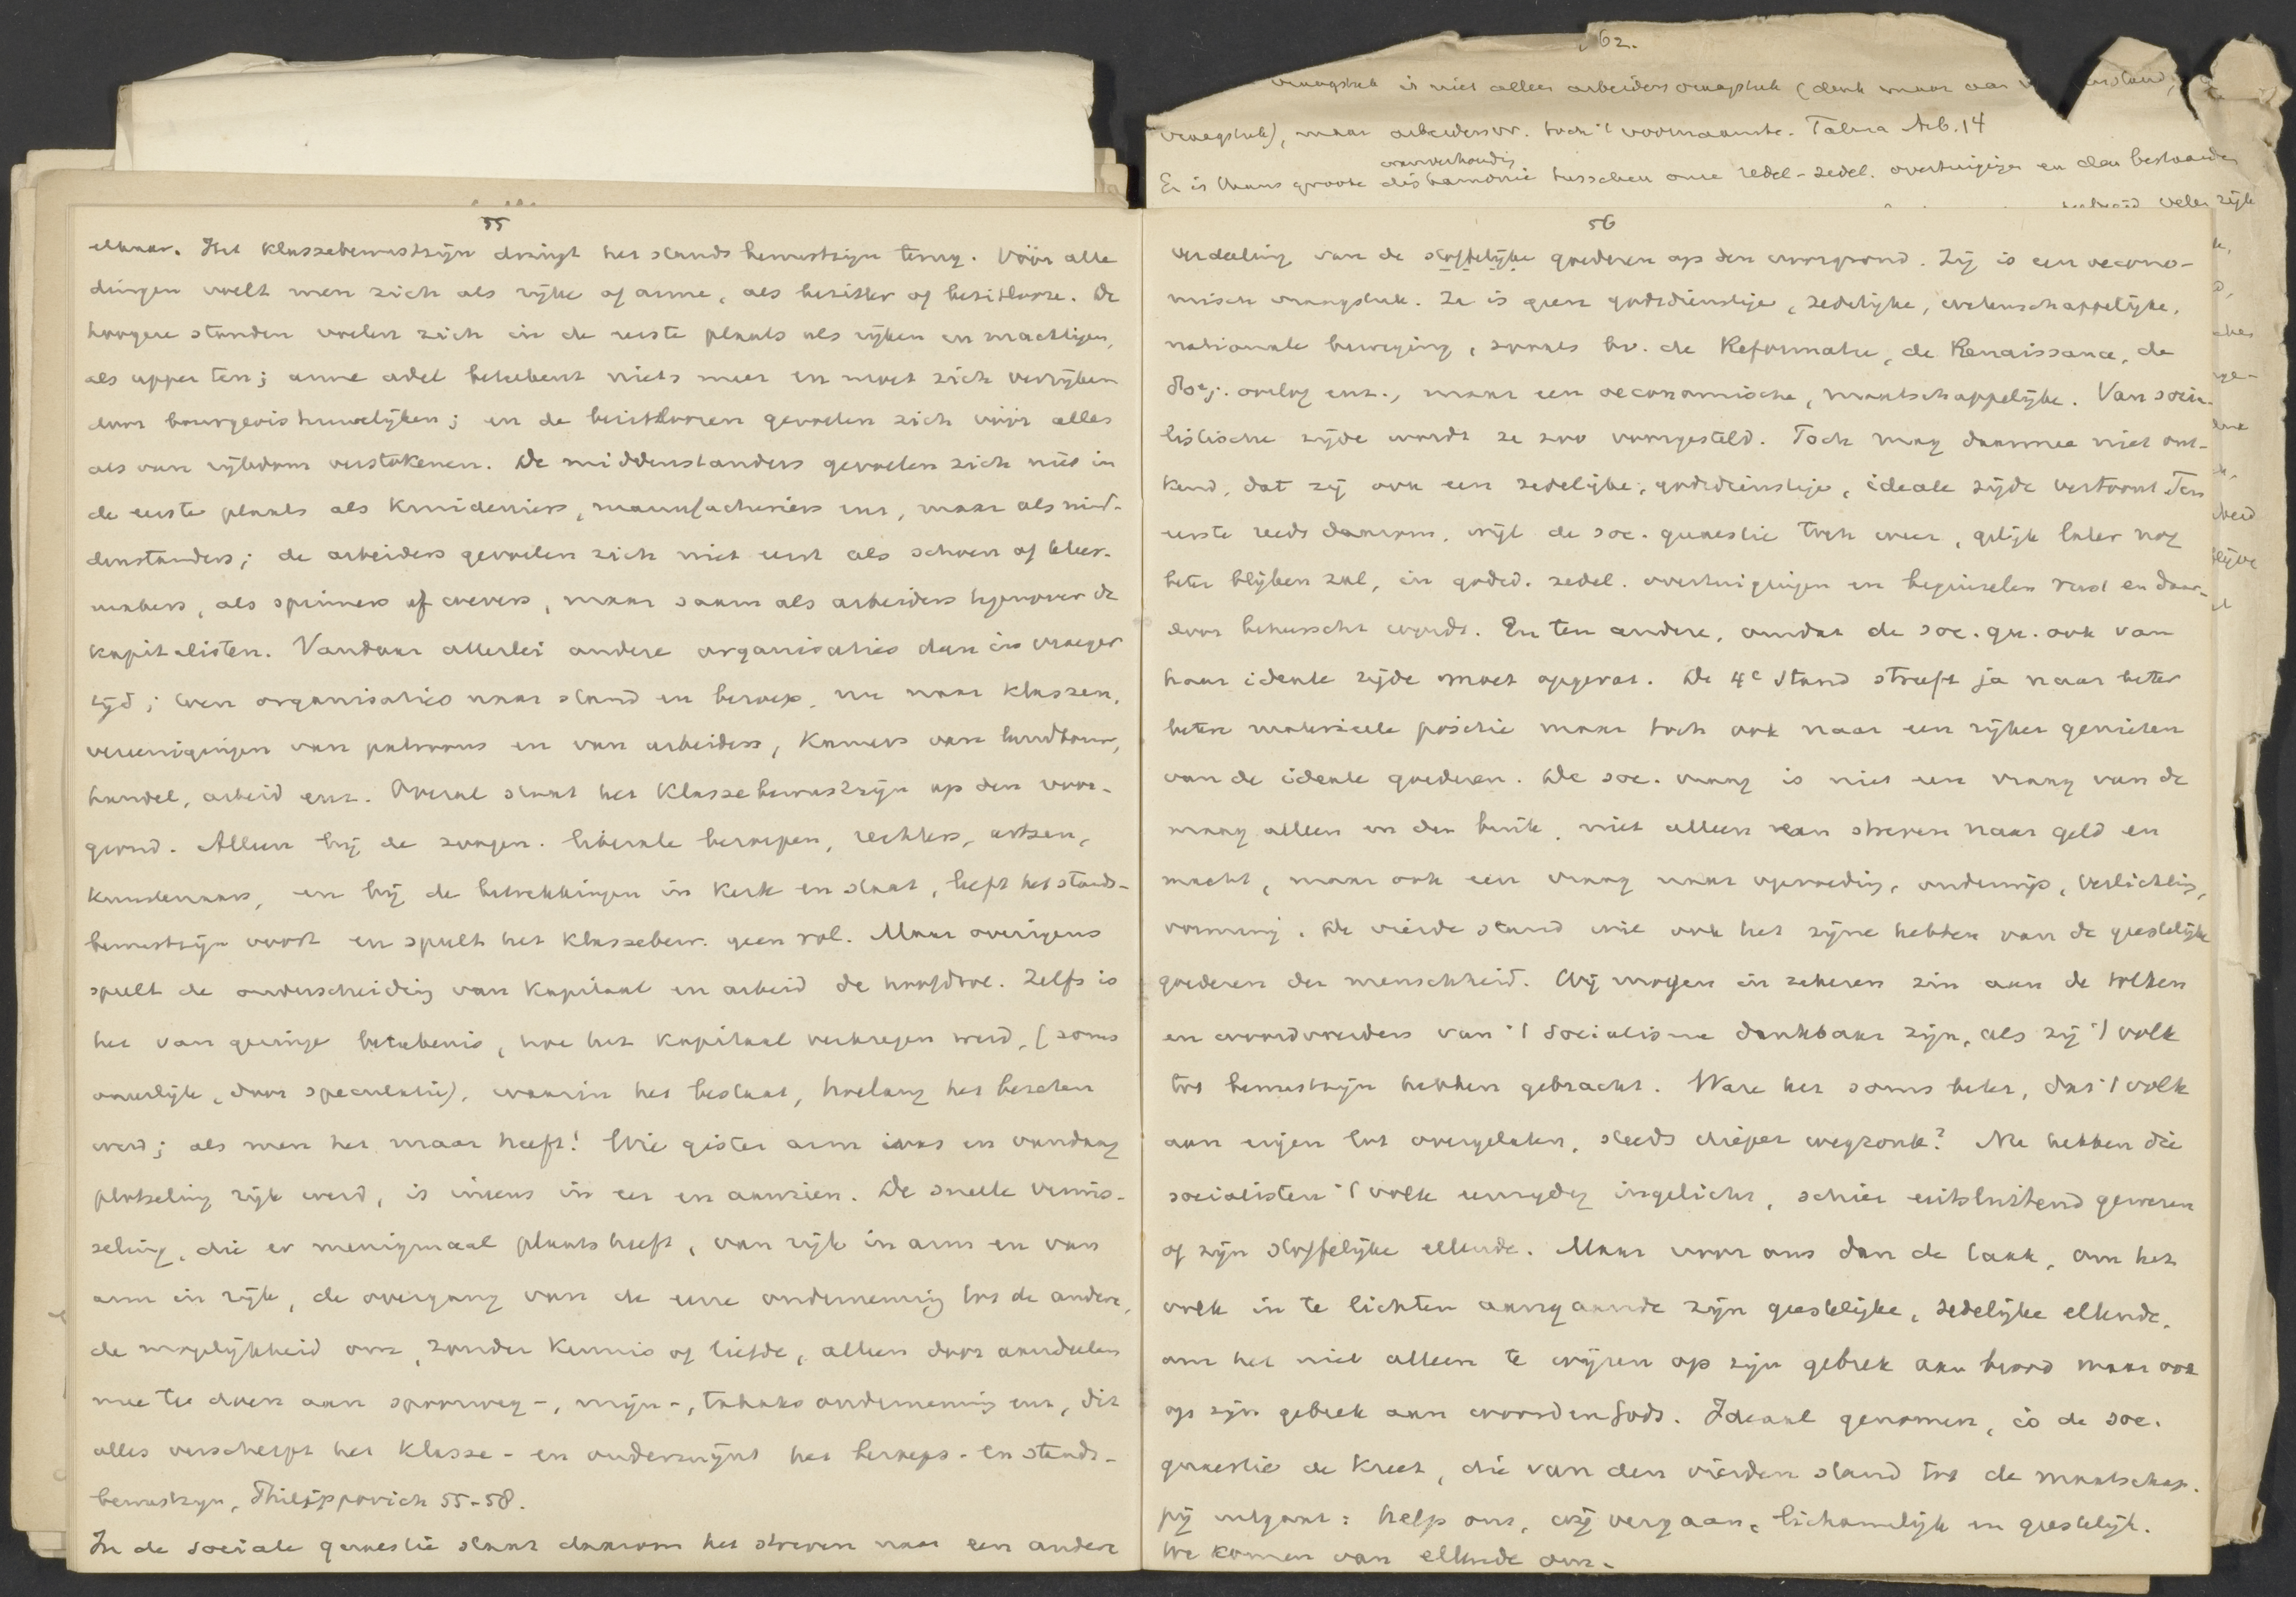 55
elkaar. Het klassebewustzijn dringt het standsbewustzijn terug. Vóór alle
dingen voelt men zich als rijke of arme, als bezitter of bezitlooze. De
hoogere standen voelen zich in de eerste plaats als rijken en machtigen,
als upper ten; arme adel beteekent niets meer en moet zich verrijken
door bourgeois huwelijken; en de bezitloozen gevoelen zich vóór alles
als van rijkdom verstokenen. De middenstanders gevoelen zich niet in
de eerste plaats als kruideniers, manufacturiers enz, maar als mid-
denstanders; de arbeiders gevoelen zich niet eerst als schoen of kleer-
makers, als spinners of wevers, maar saam als arbeiders tegenover de
kapitalisten. Vandaar allerlei andere organisaties dan in vroeger
tijd; toen organisaties naar stand en beroep, nu naar klassen,
vereenigingen van patroons en van arbeiders, Kamers van landbouw,
handel, arbeid enz. Overal staat het klassebewustzijn op den voor-
grond. Alleen bij de zoogen. liberale beroepen, rechters, artsen,
kunstenaars, en bij de betrekkingen in kerk en staat, leeft het stands-
bewustzijn voort en speelt het klassebew. geen rol. Maar overigens
speelt de onderscheiding van kapitaal en arbeid de hoofdrol. Zelfs is
het van geringe beteekenis, hoe het kapitaal verkregen werd, (soms
oneerlijk, door speculatie), waarin het bestaat, hoelang het bezeten
werd; als men het maar heeft! Wie gister arm was en vandaag
plotseling rijk werd, is ineens in eer en aanzien. De snelle wis-
seling, die er menigmaal plaats heeft, van rijk in arm en van
arm in rijk, de overgang van de eene onderneming tot de andere,
de mogelijkheid om, zonder kennis of liefde, alleen door aandeelen
mee te doen aan spoorweg-, mijn-, tabaks onderneming enz, dit
alles verscherpt het klasse- en ondermijnt het beroeps- en stands-
bewustzijn, Philippovich 55-58.
In de sociale quaestie staat daarom het streven naar een andere
62.
vraagstuk is niet alleen arbeidersvraagstuk (denk maar aan
vraagstuk), maar arbeidersvr. toch 't voornaamste. Talma Arb. 14
wanverhouding
Er is thans groote disharmonie tusschen onze redel-zedel. overtuigingen en den bestaanden
veler zijde
56
verdeeling van de stoffelijke goederen op den voorgrond. Zij is een oecono-
misch vraagstuk. Ze is geen godsdienstige, zedelijke, wetenschappelijke,
nationale beweging, zooals bv. de Reformatie, de Renaissance, de
80j. oorlog enz., maar een oeconomische, maatschappelijke. Van socia-
listische zijde wordt ze zoo voorgesteld. Toch mag daarmee niet ont-
kend, dat zij ook een zedelijke, godsdienstige, ideale zijde vertoont. Ten
eerste reeds daarom, wijl de soc. quaestie toch weer, gelijk later nog
beter blijken zal, in godsd. zedel. overtuigingen en beginselen rust en daar-
door beheerscht wordt. En ten andere, omdat de soc. qu. ook van
haar ideale zijde moet opgevat. De 4e stand streeft ja naar beter
betere materieele positie maar toch ook naar een rijker genieten
van de ideale goederen. De soc. vraag is niet een vraag van de
maag alleen en den buik, niet alleen een streven naar geld en
macht, maar ook een vraag naar opvoeding, onderwijs, verlichting,
vorming. De vierde stand wil ook het zijne hebben van de geestelijke
goederen der menschheid. Wij mogen in zekeren zin aan de tolken
en woordvoerders van 't socialisme dankbaar zijn, als zij 't volk
tot bewustzijn hebben gebracht. Ware het soms beter, dat 't volk
aan eigen lot overgelaten, steeds dieper wegzonk? Nu hebben die
socialisten 't volk eenzijdig ingelicht, schier uitsluitend gewezen
op zijn stoffelijke ellende. Maar voor ons dan de taak, om het
volk in te lichten aangaande zijn geestelijke, zedelijke ellende,
om het niet alleen te wijzen op zijn gebrek aan brood maar ook
op zijn gebrek aan woorden Gods. Ideaal genomen, is de soc.
quaestie de kreet, die van den vierden stand tot de maatschap-
pij uitgaat: help ons, wij vergaan, lichamelijk en geestelijk.
We komen van ellende om.